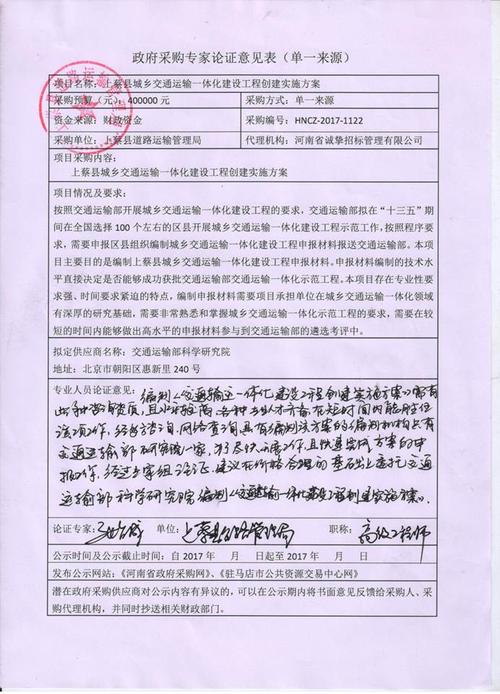 政府采购专家论证意见表（单一来源）
项目名称：上蔡县城乡交通运输一体化建设工程创建实施方案
采购预算（元）：400000 元 采购方式：单一来源
资金来源：财政资金 采购编号：HNCZ-2017-1122
采购单位：上蔡县道路运输管理局 代理机构：河南省诚挚招标管理有限公司
项目采购内容：
上蔡县城乡交通运输一体化建设工程创建实施方案
项目情况及要求：
按照交通运输部开展城乡交通运输一体化建设工程的要求，交通运输部拟在“十三五”期
间在全国选择 100 个左右的区县开展城乡交通运输一体化建设工程示范工作，按照程序要
求，需要申报区县组织编制城乡交通运输一体化建设工程申报材料报送交通运输部。本项
目主要目的是编制上蔡县城乡交通运输一体化建设工程申报材料。申报材料编制的技术水
平直接决定是否能够成功获批交通运输部交通运输一体化示范工程。本项目存在专业性要
求强、时间要求紧迫的特点，编制申报材料需要项目承担单位在城乡交通运输一体化领域
有深厚的研究基础，需要非常熟悉和掌握城乡交通运输一体化示范工程的要求，需要在较
短的时间内能够做出高水平的申报材料参与到交通运输部的遴选考评中。
拟定供应商名称：交通运输部科学研究院
地址：北京市朝阳区惠新里 240 号
专业人员论证意见：编制《交通运输一体化建设工程创建实施方案》需有
且水平较高，各种专业人才齐备，在短时间内能胜任
该项工作，经多方咨询、网络查询，具有编制该方案的编制机构只有
交通运输部研究院一家，为尽快开展工作，且快速完成方案的申
报工作，经过专家组论证，建议在价格合理的基础上委托交通
运输部科学研究院编制《交通运输一体化建设工程创建实施方案》。
论证专家： 单位：上蔡县公路管理局 职称：高级工程师
公示时间及公示截止时间：自 2017 年 月 日起至 2017 年 月 日
发布公示网站：《河南省政府采购网》、《驻马店市公共资源交易中心网》
潜在政府采购供应商对公示内容有异议的，可以在公示期内将书面意见反馈给采购人、采
购代理机构，并同时抄送相关财政部门。